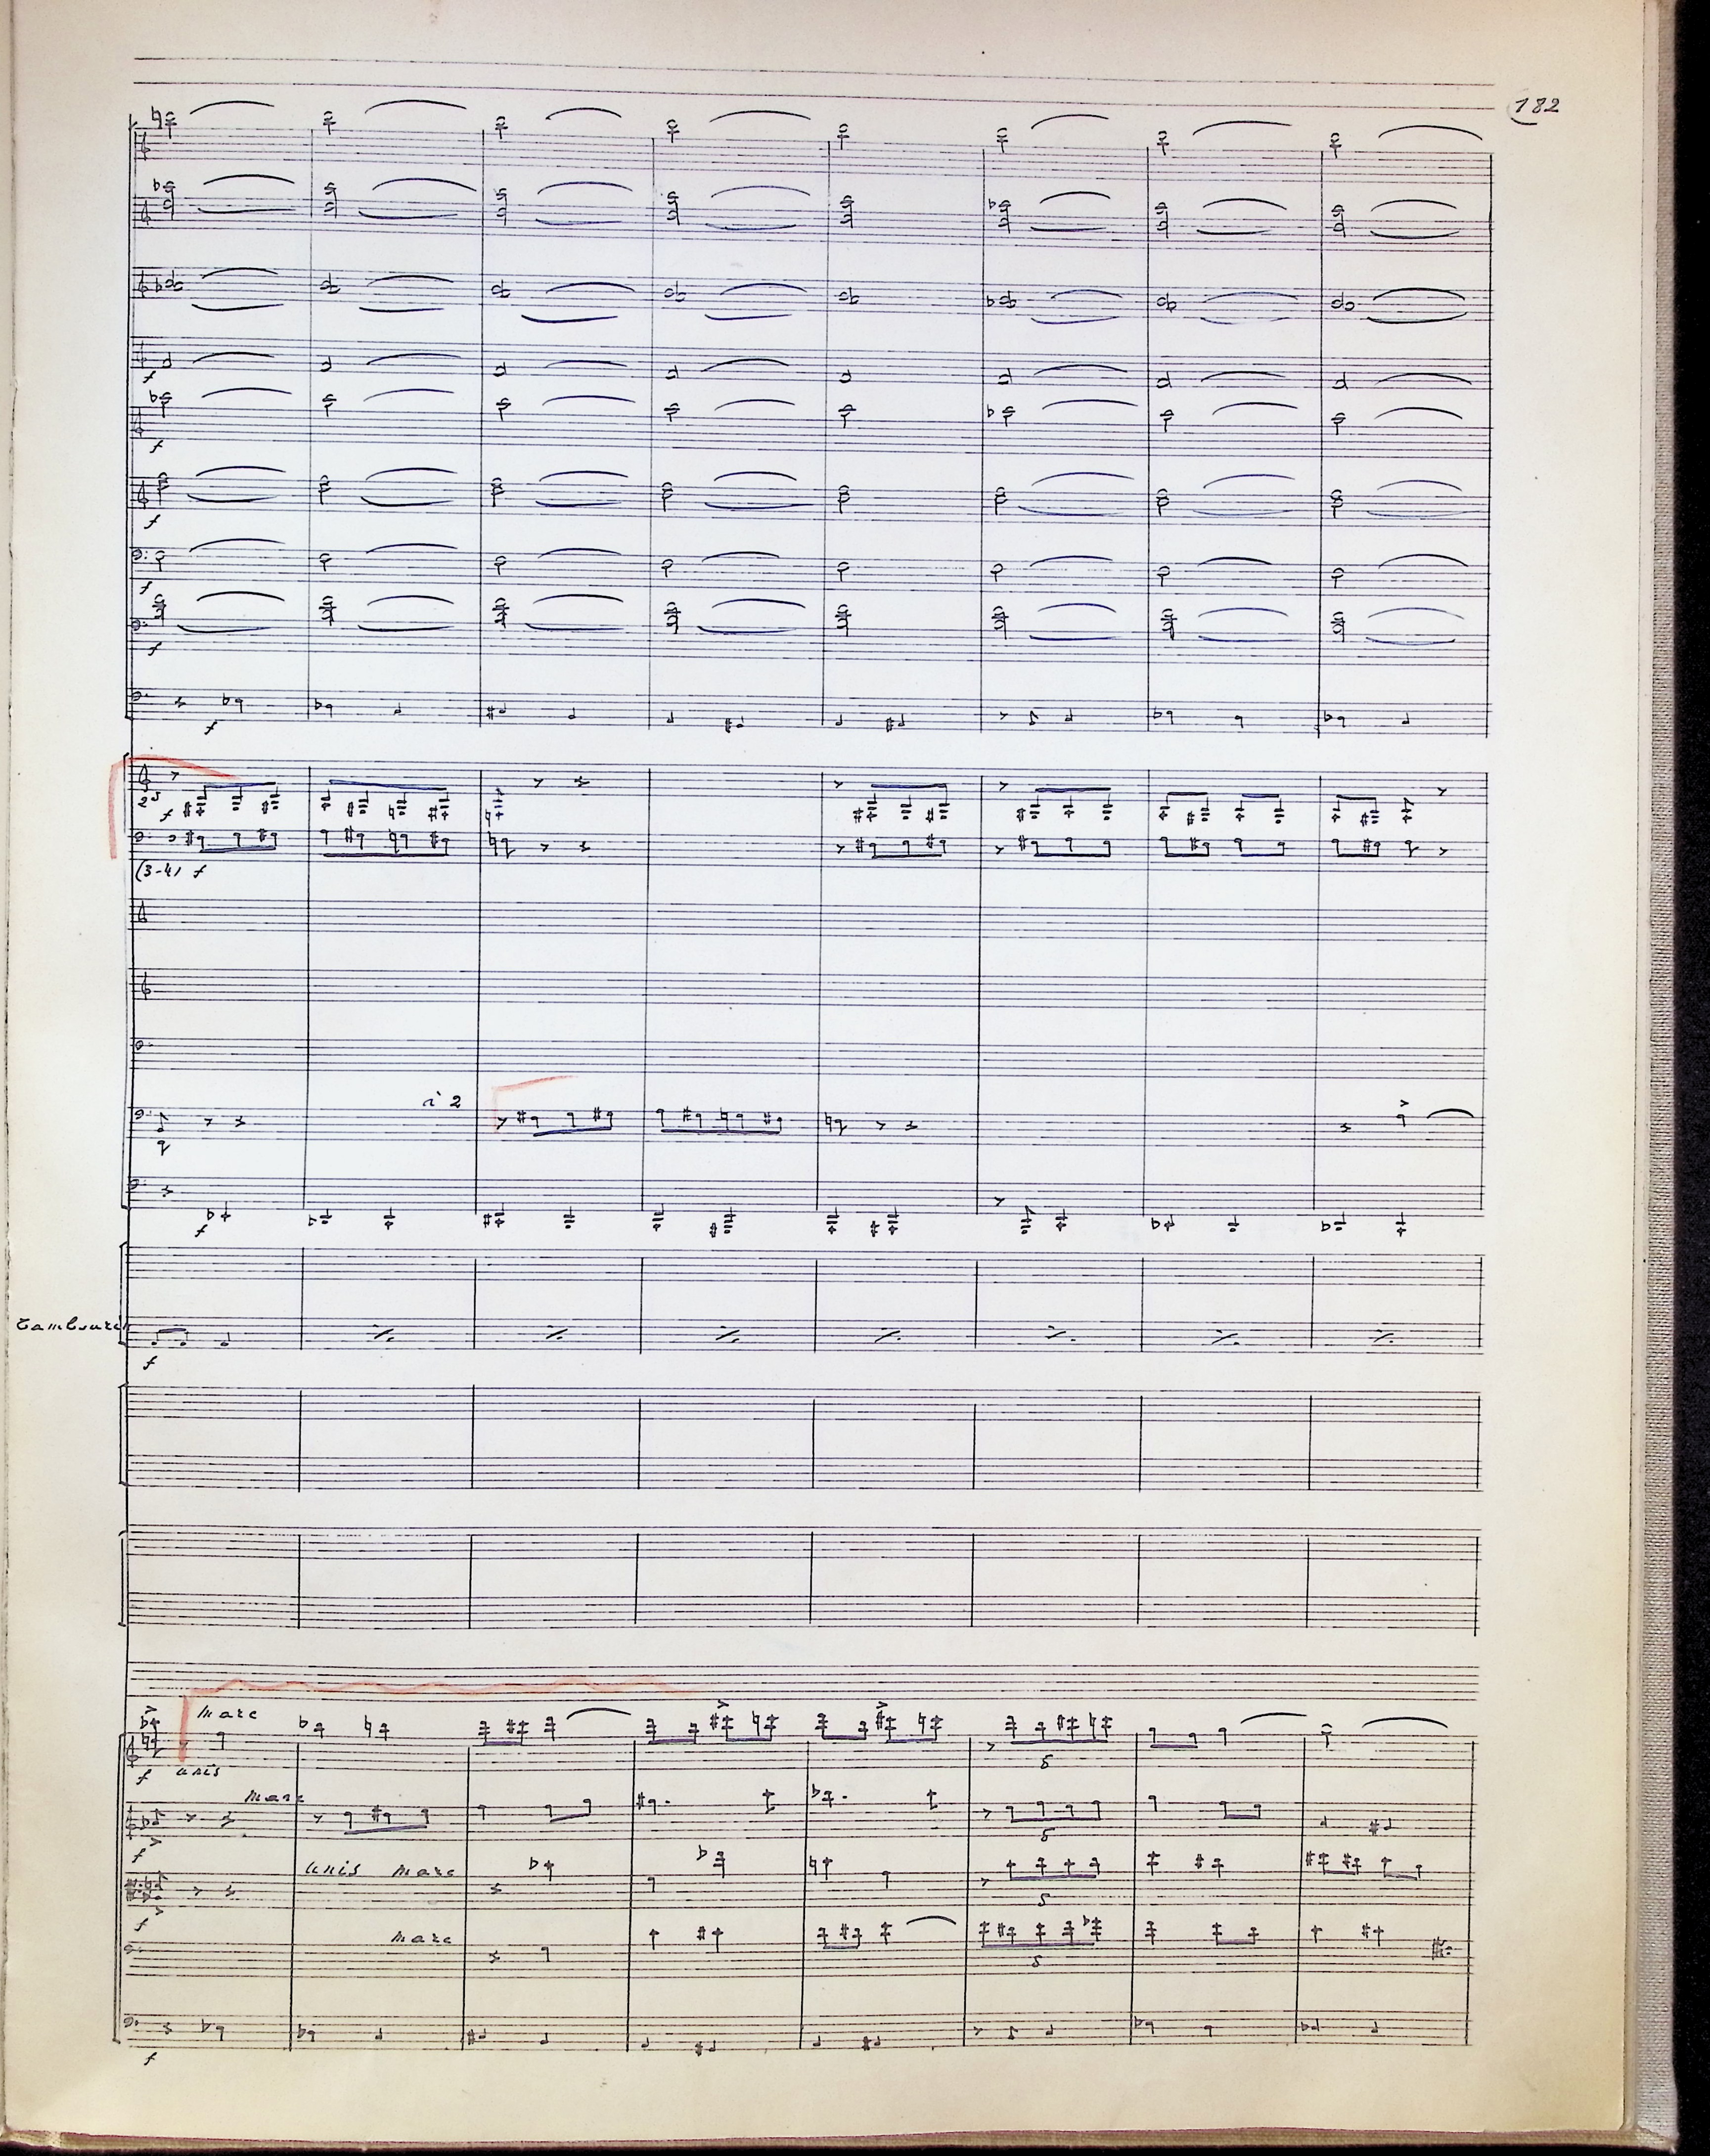 182
f
f
f
f
f
f
25
f
(3-4) f
à 2
f
Tambourin
f
marc
f unis
marc
5
f
5
unis marc
5
f
marc
5
f